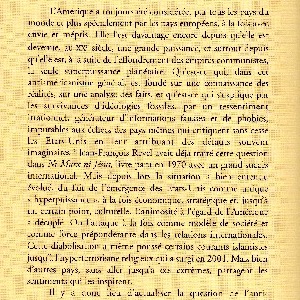 L'Amérique a toujours été considérée, par tous les pays du
monde et plus spécialement par les pays européens, à la fois avec
envie et mépris. Elle l'est davantage encore depuis qu'elle est
devenue, au XXe siècle, une grande puissance, et surtout depuis
qu'elle est, à la suite de l'effondrement des empires communistes,
la seule superpuissance planétaire. Qu'est-ce qui, dans cet
antiaméricanisme général, est fondé sur une connaissance des
réalités, sur une analyse des faits, et qu'est-ce qui s'explique par
les survivances d'idéologies fossiles, par un ressentiment
irrationnel, générateur d'informations fausses et de phobies,
imputables aux échecs des pays mêmes qui critiquent sans cesse
les États-Unis en leur attribuant des défauts souvent
imaginaires ? Jean-François Revel avait déjà traité cette question
dans Ni Marx ni Jésus, livre paru en 1970 avec un grand succès
international. Mais depuis lors la situation a bien entendu
évolué, du fait de l'émergence des États-Unis comme unique
« hyperpuissance », à la fois économique, stratégique et, jusqu'à
un certain point, culturelle. L'animosité à l'égard de l'Amérique
a décuplé. On l'attaque à la fois comme modèle de société et
comme force prépondérante dans les relations internationales.
Cette diabolisation a même poussé certains courants islamistes
jusqu'à l'hyperterrorisme religieux qui a surgi en 2001. Mais bien
d'autres pays, sans aller jusqu'à ces extrêmes, partagent les
sentiments qui les inspirent.
Il y a donc lieu d'actualiser la question de l'anti-